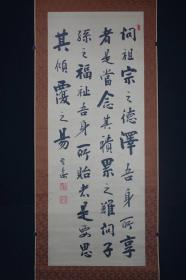 問祖宗之德澤吾身所享
者是當念其積累之難問子
孫之福祉吾身所貽者是要思
其傾覆之易